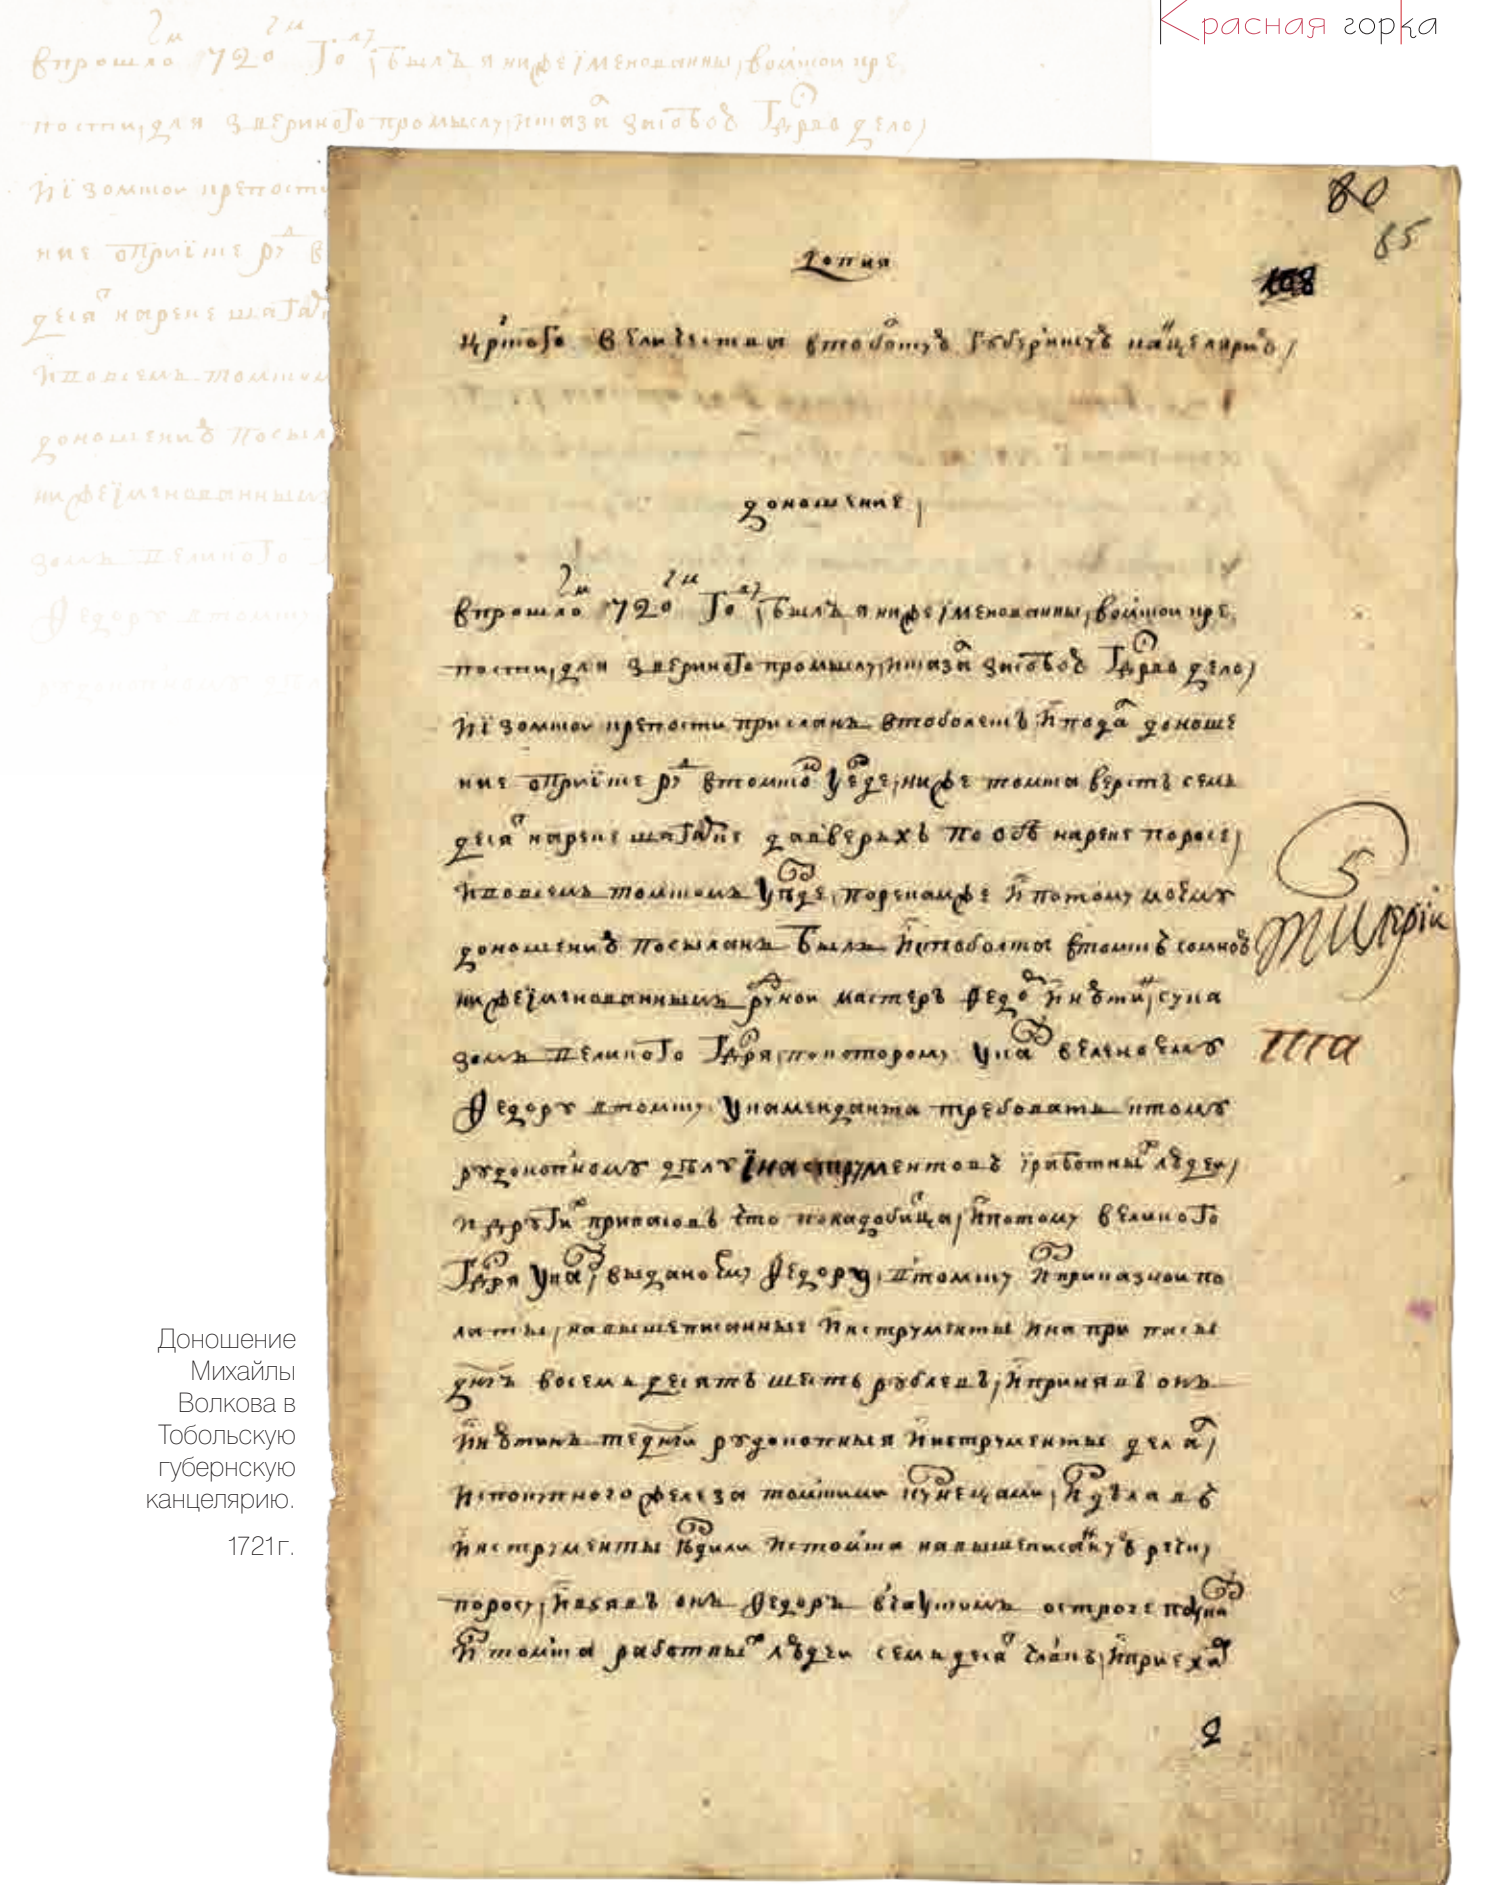 Красная горка
80
85
108
Копия
црского величества втоболскую губернскую канцелярию
доношение
впрошлом 720м году был я нижеименованны, втомскои кре
пости, для звериного промыслу, и сказал за собою гдрво дело,
и ис томскои крепости прислан втоболескъ и подал доноше
ние о прииске руд втомском уезде, ниже томска верстъ семь
десят нареке шагарке да вверьхъ по обе нареке поросе,
и во всемъ томском уезде, по рекам же и потому моему
доношению посылан былъ ис тоболска втомскъ со мною
нижеименованнымъ рудкои мастеръ Федор Инютин, с ука
зомъ великого гдря, по которому указу велено ему
Федору втомску у каменданта требовать ктому
рудокопному делу инструментовъ и работных людеи,
и других припасовъ что понадобитца, и потому великого
гдря указу, выдано ему Федору, втомску ис приказнои по
латы, на вышеписанные инструменты и на при пасы
днгъ восемьдесятъ шесть рублевъ, и принявъ онъ
Инютинъ те днги рудокопныя инструменты делал,
ис покупного железа томскими кузнецами, и зделавъ
инструменты ездили ис томска на вышеписанную речку
поросу, и взявъ онъ Федоръ в чаускомъ остроге по указу
ис томска работных людеи семьдесят члвкъ, и приехал
2
Доношение
Михайлы
Волкова в
Тобольскую
губернскую
канцелярию.
1721 г.